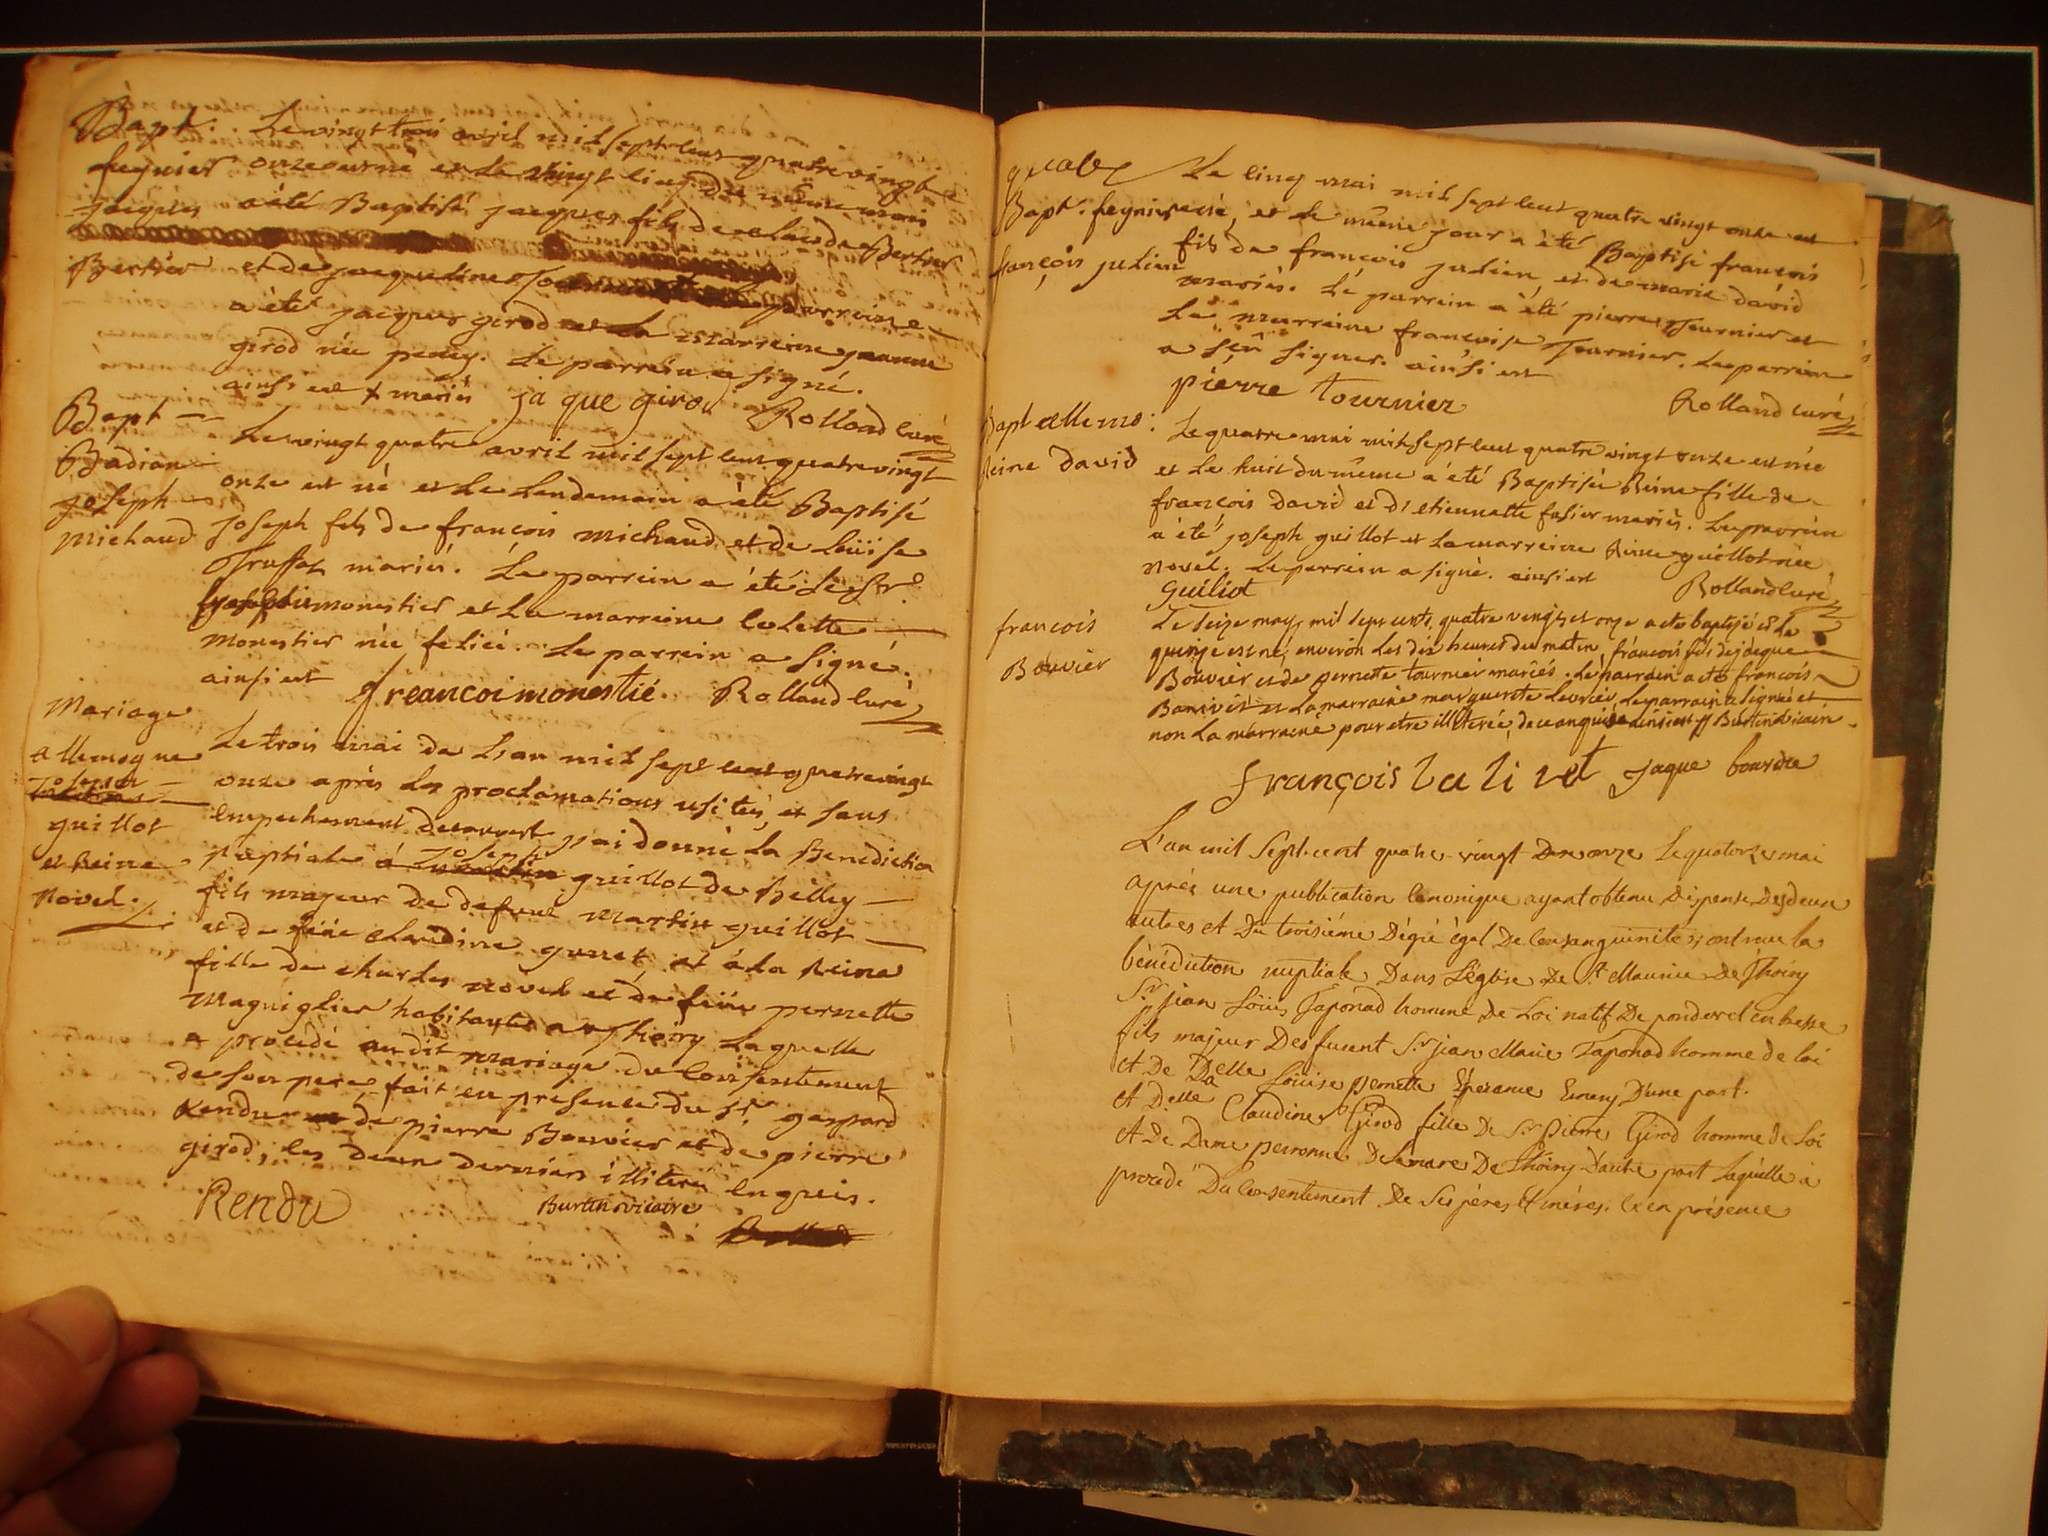 Bapt. Le vingt trois avril mil sept cent quatre vingt
feignier onze est né et le vingt cinq du même mois
jacques a été Baptisé jacques fils de claude Bertier
Bertier et de jacqueline parreine
a été jacques girod et la marreine jeanne
girod née pency. Le parrein a signé.
ainsi est + mariés ja que girod Rolland curé
Bapt Le vingt quatre avril mil sept cent quatre vingt
Badian onze est né et le lendemain a été Baptisé
joseph joseph fils de françois michaud et de Loüise
michaud Truffat mariés. Le parrein a été le Sr.
monestier et la marreine Colette
monestier née felicé. Le parrein a signé.
ainsi est freancoi monestié. Rolland curé
Mariage
allemogne Le trois mai de L'an mil sept cent quatre vingt
joseph onze après les proclamations usitées, et sans
guillot empechement decouvert j'ai donné la Benediction
et Reine nuptiale à joseph guillot de Belley
Novel. fils majeur de defunt martin guillot
et de feüe claudine gunet et à la Reine
fille de charles novel et de feüe pernette
Magniglier habitante a Thoiry laquelle
a procédé audit mariage du consentement
de son pere, fait en presence du Sr. gaspard
Rendu de pierre Bouvier et de pierre
girod, les deux derniers illiterés enquis.
Rendu Burtin vicaire
Le cinq mai mil sept cent quatre vingt onze est
Bapt. feignier né, et le même jour a été Baptisé françois
françois julien fils de françois julien, et de marie david
mariés. Le parrein a été pierre Tournier et
La marreine françoise Tournier. Le parrein
a sçû signer. ainsi est
pierre tournier Rolland curé
Bapt allemo: Le quatre mai mil sept cent quatre vingt onze est née
Reine david et le huit du même a été Baptisée Reine fille de
françois david et d'etiennette fasier mariés. Le parrein
a été joseph guillot et la marreine Reine guillot née
novel. Le parrein a signé. ainsi est Rolland curé
Guiliot
françois Le seize may mil sept cents quatre vingts et onze a ete baptisé et le
Bouvier quinze est né, environ les dix heures du matin, françois fils de jacque
Bouvier et de pernette tournier mariés. Le parrain a eté françois
et la marraine marguerite Levrier, Le parrain a signé et
non la marraine pour etre illiterée, de ce enquise ainsi est Burtin vicaire
françois bali vet jaque bourdie
L'an mil Sept-cent quatre-vingt onze le quatorze mai
après une publication canonique ayant obtenu dispense des deux
autres et Du troisième Dégré égal De consanguinité, ont reçu la
bénédiction nuptiale Dans L'église De St. Maurice De Thoiry
Sr. jean Loüis Taponad homme De Loi natif De pondevel en bresse
fils majeur De defunt Sr. jean Marie Taponad homme de loi
et De Delle Loüise pernette Esperance D'une part.
et Delle Claudine Girod fille De Sr. pierre Girod homme de Loi
et De Dame peronne De Thoiry D'autre part Laquelle a
procédé Du consentement De Ses pères et mères. en présence